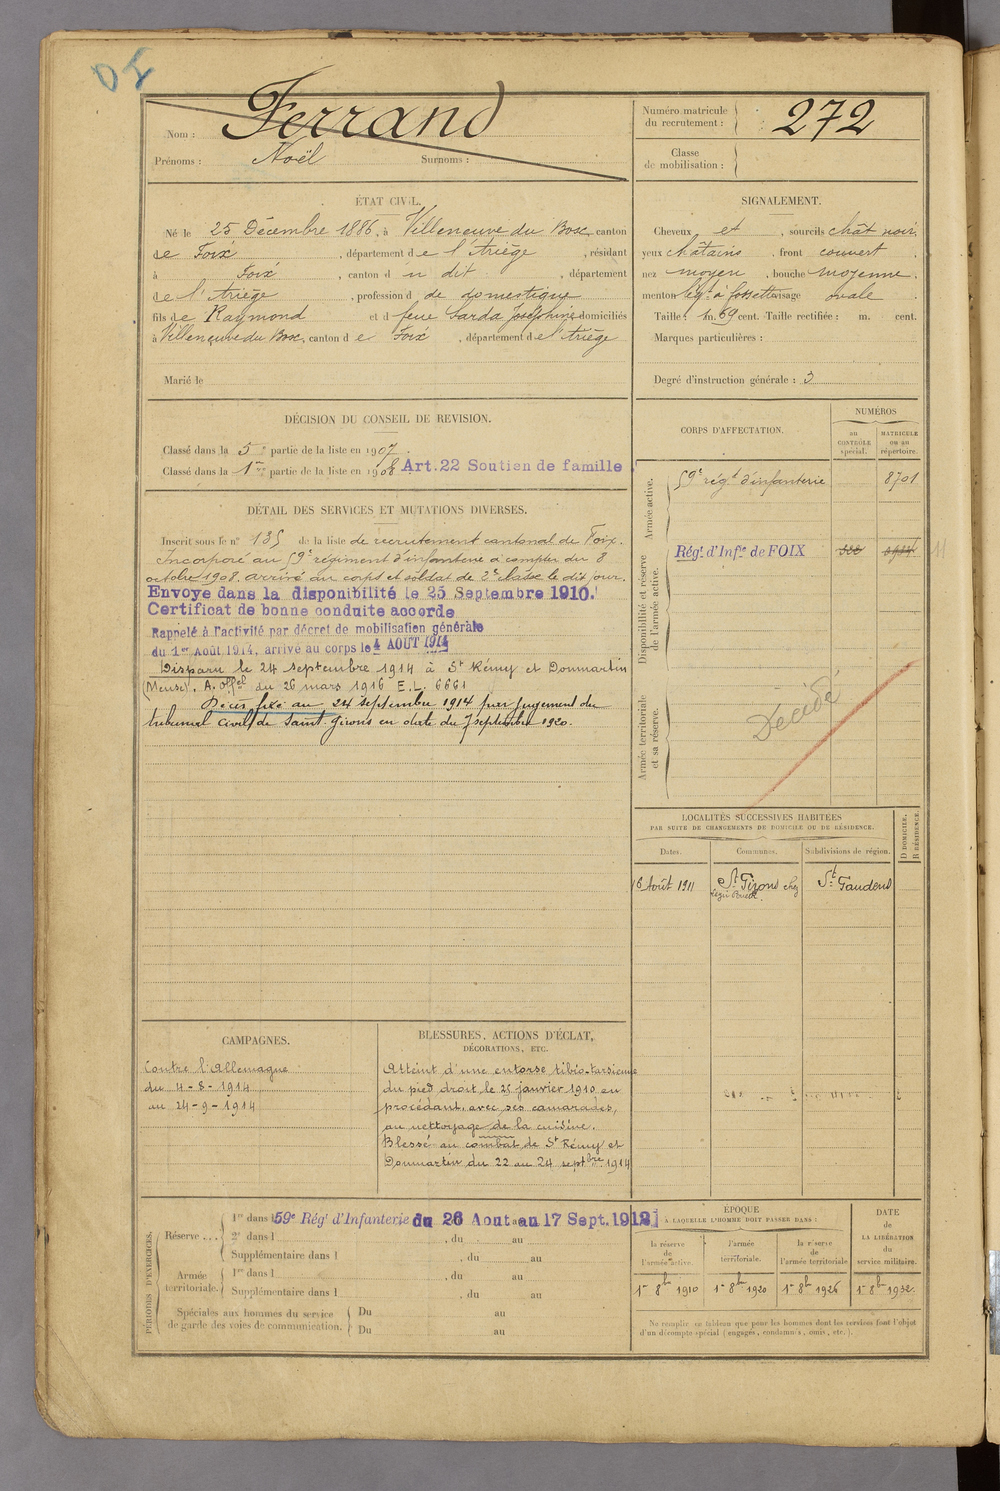 Nom : Ferrand
Prénoms : Noël Surnoms :
Numéro matricule
du recrutement : 272
Classe
de mobilisation :
ÉTAT CIVIL.
Né le 25 Décembre 1886, à Villeneuve du Bosc, canton
de Foix, département de l'Ariège, résidant
à Foix, canton d u dit, département
de l'Ariège, profession d de domestique
fils de Raymond et d feue Sarda Joséphine domiciliés
à Villeneuve du Bosc, canton de Foix, département de l'Ariège
Marié le
SIGNALEMENT.
Cheveux et, sourcils chât noir,
yeux châtains, front couvert,
nez moyen, bouche moyenne,
menton lég.t à fossette visage ovale
Taille : 1 m. 69 cent. Taille rectifiée : m. cent.
Marques particulières :
Degré d'instruction générale : 3
DÉCISION DU CONSEIL DE REVISION.
Classé dans la 5e partie de la liste en 1907.
Classé dans la 1re partie de la liste en 1908 Art. 22 Soutien de famille
CORPS D'AFFECTATION.
NUMÉROS
au CONTRÔLE spécial.
MATRICULE ou au répertoire.
Armée active.
59e rég.t d'infanterie 8701
Disponibilité et réserve de l'armée active.
Rég.t d'Inf.ie de FOIX
Armée territoriale et sa réserve.
Décédé
DÉTAIL DES SERVICES ET MUTATIONS DIVERSES.
Inscrit sous le n° 135 de la liste de recrutement cantonal de Foix.
Incorporé au 59e régiment d'infanterie à compter du 8
octobre 1908, arrivé au corps et soldat de 2e classe le dit jour.
Envoyé dans la disponibilité le 25 Septembre 1910.
Certificat de bonne conduite accordé
Rappelé à l'activité par décret de mobilisation générale
du 1er Août 1914, arrivé au corps le 4 AOUT 1914
Disparu le 24 septembre 1914 à St Rémy et Dommartin
(Meuse). A. offel du 26 mars 1916 E.L. 6661
Décès fixé au 24 septembre 1914 par jugement du
tribunal civil de Saint Girons en date du 7 septembre 1920.
LOCALITÉS SUCCESSIVES HABITÉES
PAR SUITE DE CHANGEMENTS DE DOMICILE OU DE RÉSIDENCE.
Dates. Communes. Subdivisions de région. D DOMICILE, R RÉSIDENCE.
16 Août 1911 St Girons chez St Gaudens
CAMPAGNES.
Contre l'Allemagne
du 4-8-1914
au 24-9-1914
BLESSURES, ACTIONS D'ÉCLAT,
DÉCORATIONS, ETC.
Atteint d'une entorse tibio-tarsienne
du pied droit le 25 janvier 1910 en
procédant, avec ses camarades,
au nettoyage de la cuisine.
Blessé au combat de St Rémy et
Dommartin du 22 au 24 septbre 1914
PÉRIODES D'EXERCICES.
Réserve ...
1re dans l 59e Rég.t d'Infanterie du 26 Aout au 17 Sept. 1912
2e dans l , du au
Supplémentaire dans l , du au
Armée territoriale.
1re dans l , du au
Supplémentaire dans l , du au
Spéciales aux hommes du service
de garde des voies de communication.
Du au
Du au
ÉPOQUE
À LAQUELLE L'HOMME DOIT PASSER DANS :
la réserve de l'armée active.
l'armée territoriale.
la réserve de l'armée territoriale
DATE DE LA LIBÉRATION du service militaire.
1er 8bre 1910 1er 8bre 1920 1er 8bre 1926 1er 8bre 1932.
Ne remplir ce tableau que pour les hommes dont les services font l'objet
d'un décompte spécial (engagés, condamnés, omis, etc.).